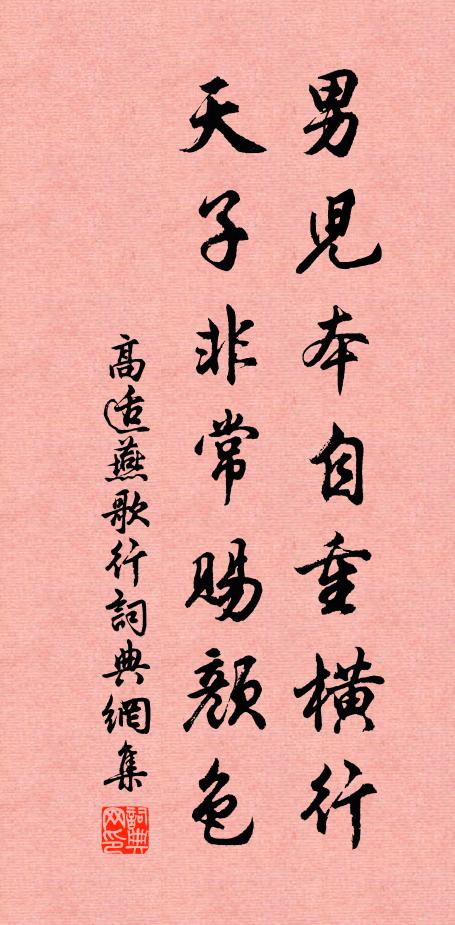 男兒本自重橫行
天子非常賜顏色
高適燕歌行詞典網集
詞典网印